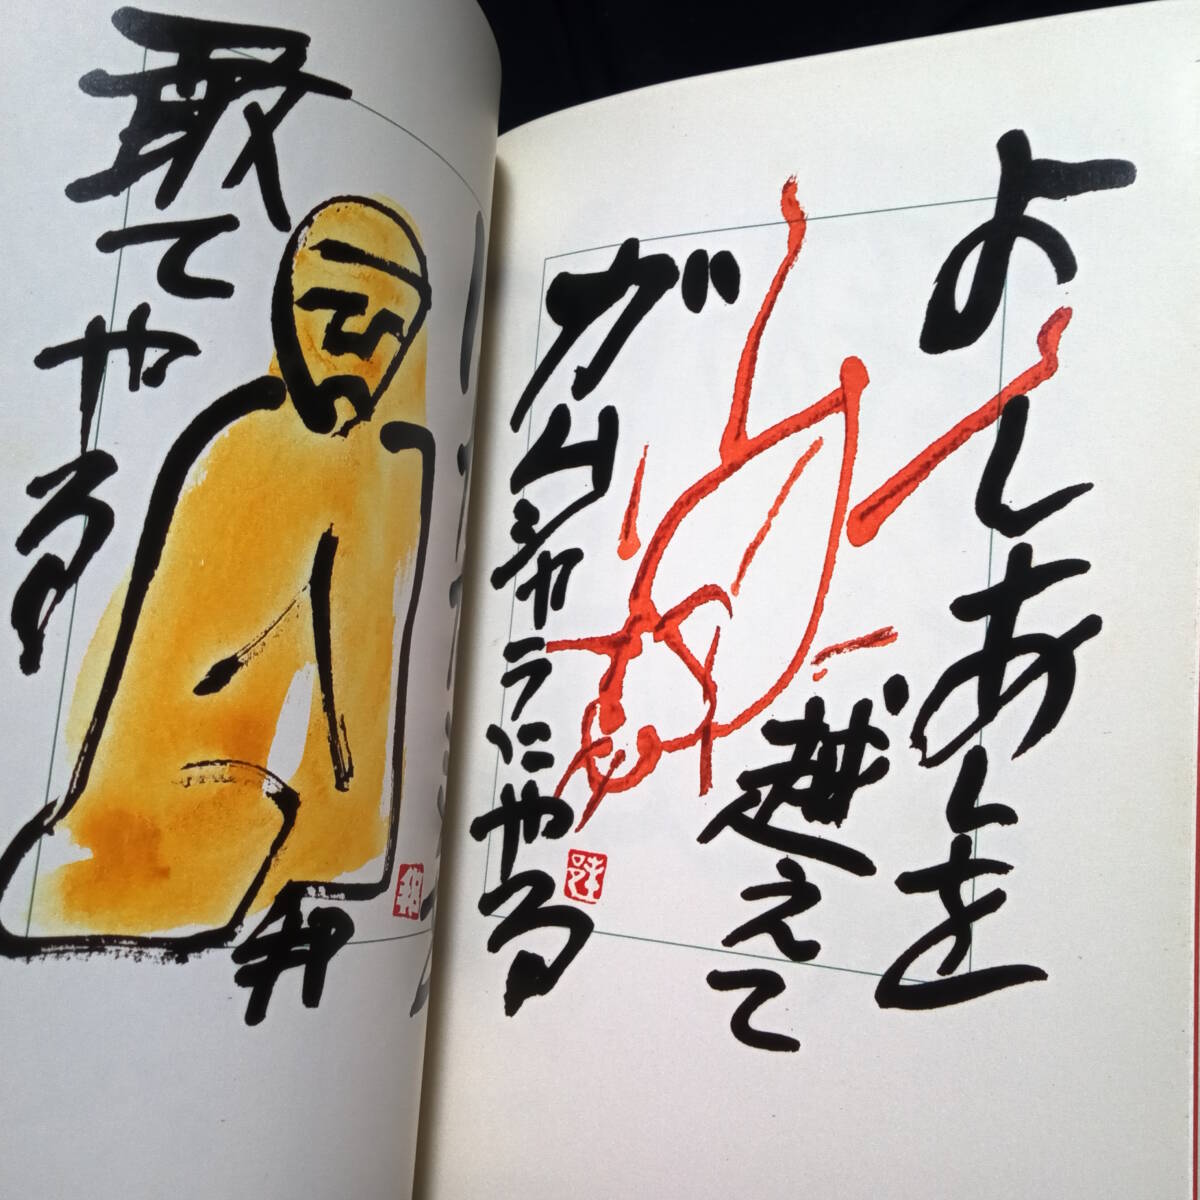 よしあしを
越えて
ガムシャラにやる
敢てやる